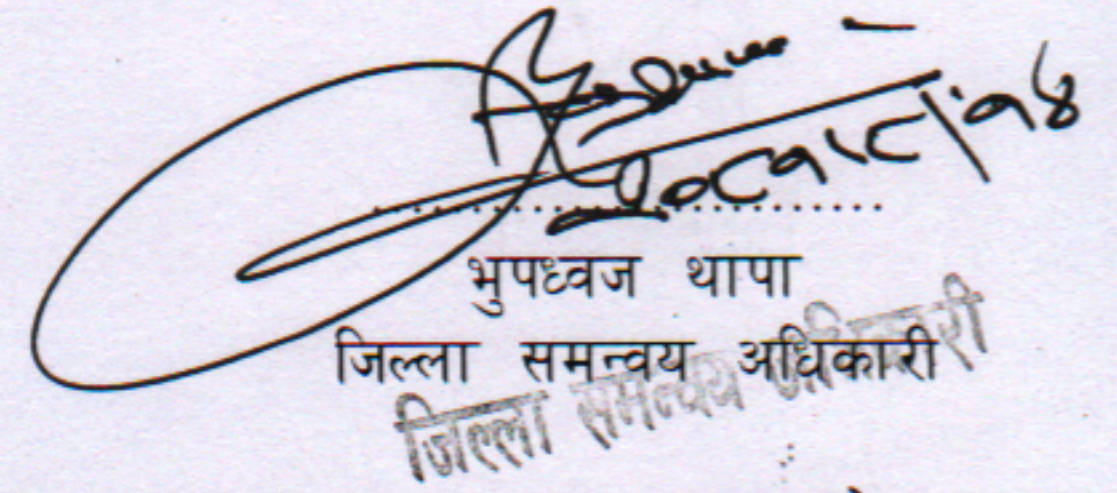 २०८१।८।१४
भुपध्वज थापा
जिल्ला समन्वय अधिकारी
जिल्ला समन्वय अधिकारी